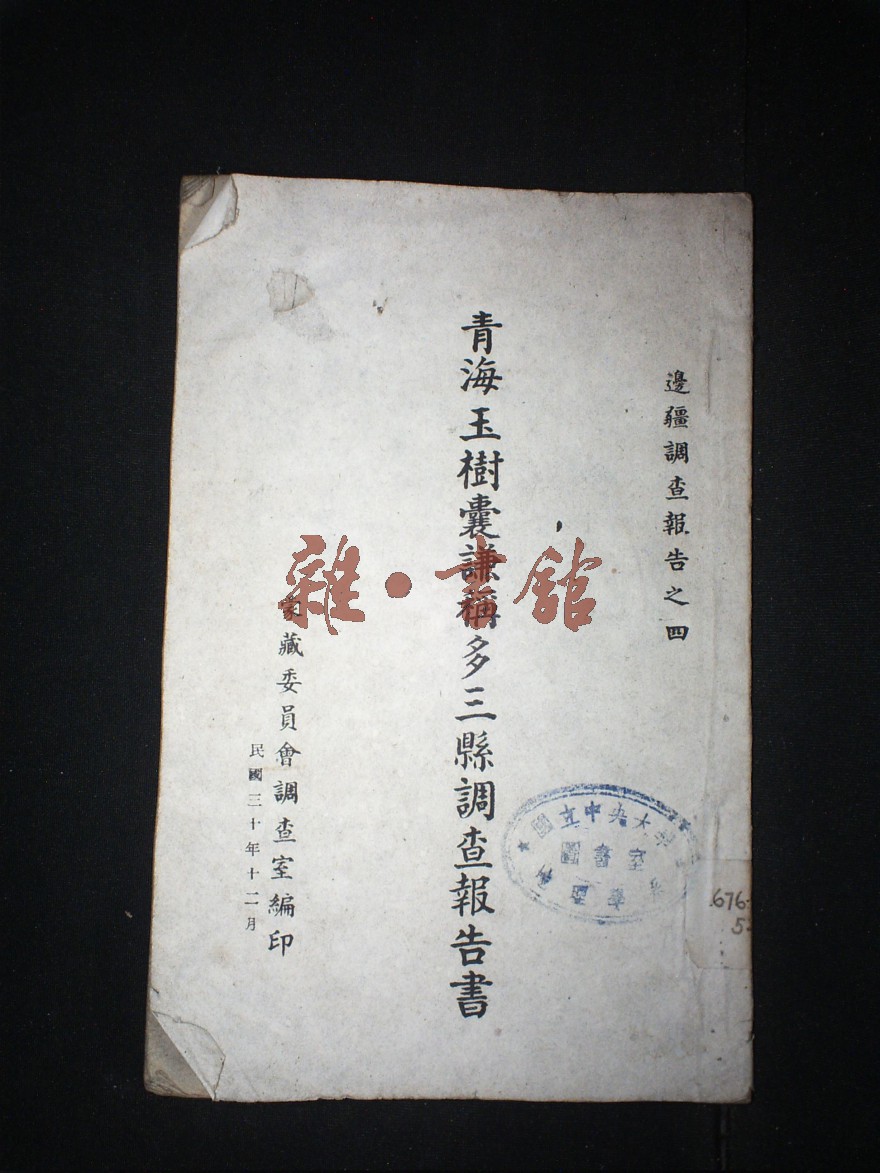 邊疆調查報告之四
青海玉樹囊謙稱多三縣調查報告書
蒙藏委員會調查室編印
民國三十年十二月
雜·書館
國立中央大學
圖書室
676.
5